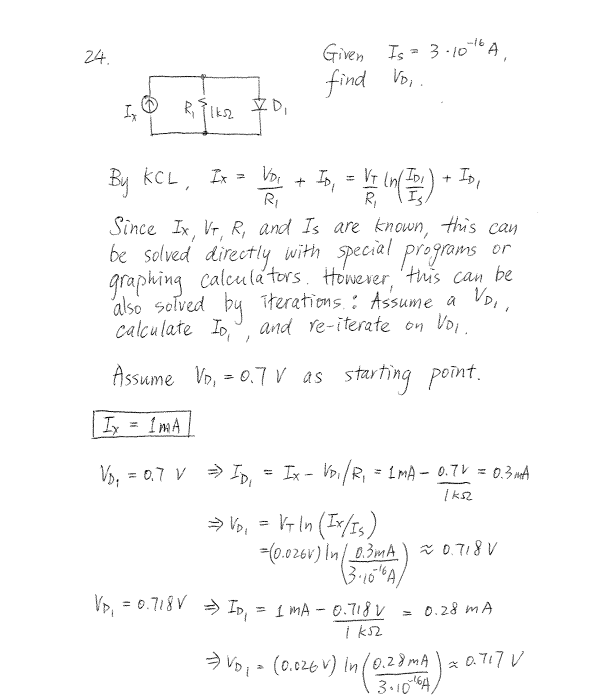 24.
Given Is = 3·10⁻¹⁶ A,
find VD₁.
Ix R₁ 1kΩ D₁
By KCL, Ix = VD₁/R₁ + ID₁ = VT/R₁ ln(ID₁/Is) + ID₁
Since Ix, VT, R₁ and Is are known, this can
be solved directly with special programs or
graphing calculators. However, this can be
also solved by iterations: Assume a VD₁,
calculate ID₁, and re-iterate on VD₁.
Assume VD₁ = 0.7 V as starting point.
Ix = 1mA
VD₁ = 0.7 V ⇒ ID₁ = Ix - VD₁/R₁ = 1mA - 0.7V/1kΩ = 0.3mA
⇒ VD₁ = VT ln(Ix/Is)
=(0.026V) ln(0.3mA/3·10⁻¹⁶A) ≈ 0.718 V
VD₁ = 0.718V ⇒ ID₁ = 1 mA - 0.718V/1kΩ = 0.28 mA
⇒ VD₁ = (0.026V) ln(0.28mA/3·10⁻¹⁶A) ≈ 0.717 V